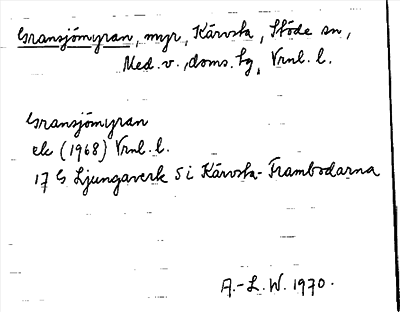 Gransjömyran, myr, Kärvsta, Stöde sn,
Med. v. doms. tg, Vrnl. l.
Gransjömyran
ek (1968) Vrnl. l.
17 G Ljungaverk S i Kärvsta-Frambodarna
A.-L. W. 1970.